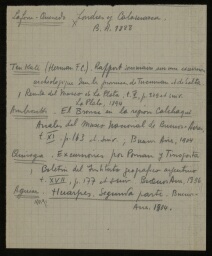 Lafone-Quevedo Londres y Catamarca.
B. A. 1888
Ten Kate (Herman F.C.) Rapport sommaire sur une excursion
archéologique dans les provinces de Tucuman et de Salta
Revista del Museo de la Plata t. V. p.
La Plata, 1894
Ambrosetti El Bronce en la región Calchaquí
Anales del Museo Nacional de Buenos-Aires,
t. XI, p. 163 et suiv., Buenos Aires, 1904
Quiroga. Excursiones por Poman y Tinogasta
Boletín del Instituto geográfico argentino
t. XVII, p. 177 et suiv. Buenos Aires, 1896
Aguiar. Huarpes, Segunda parte. Buenos-
Aires. 1904.